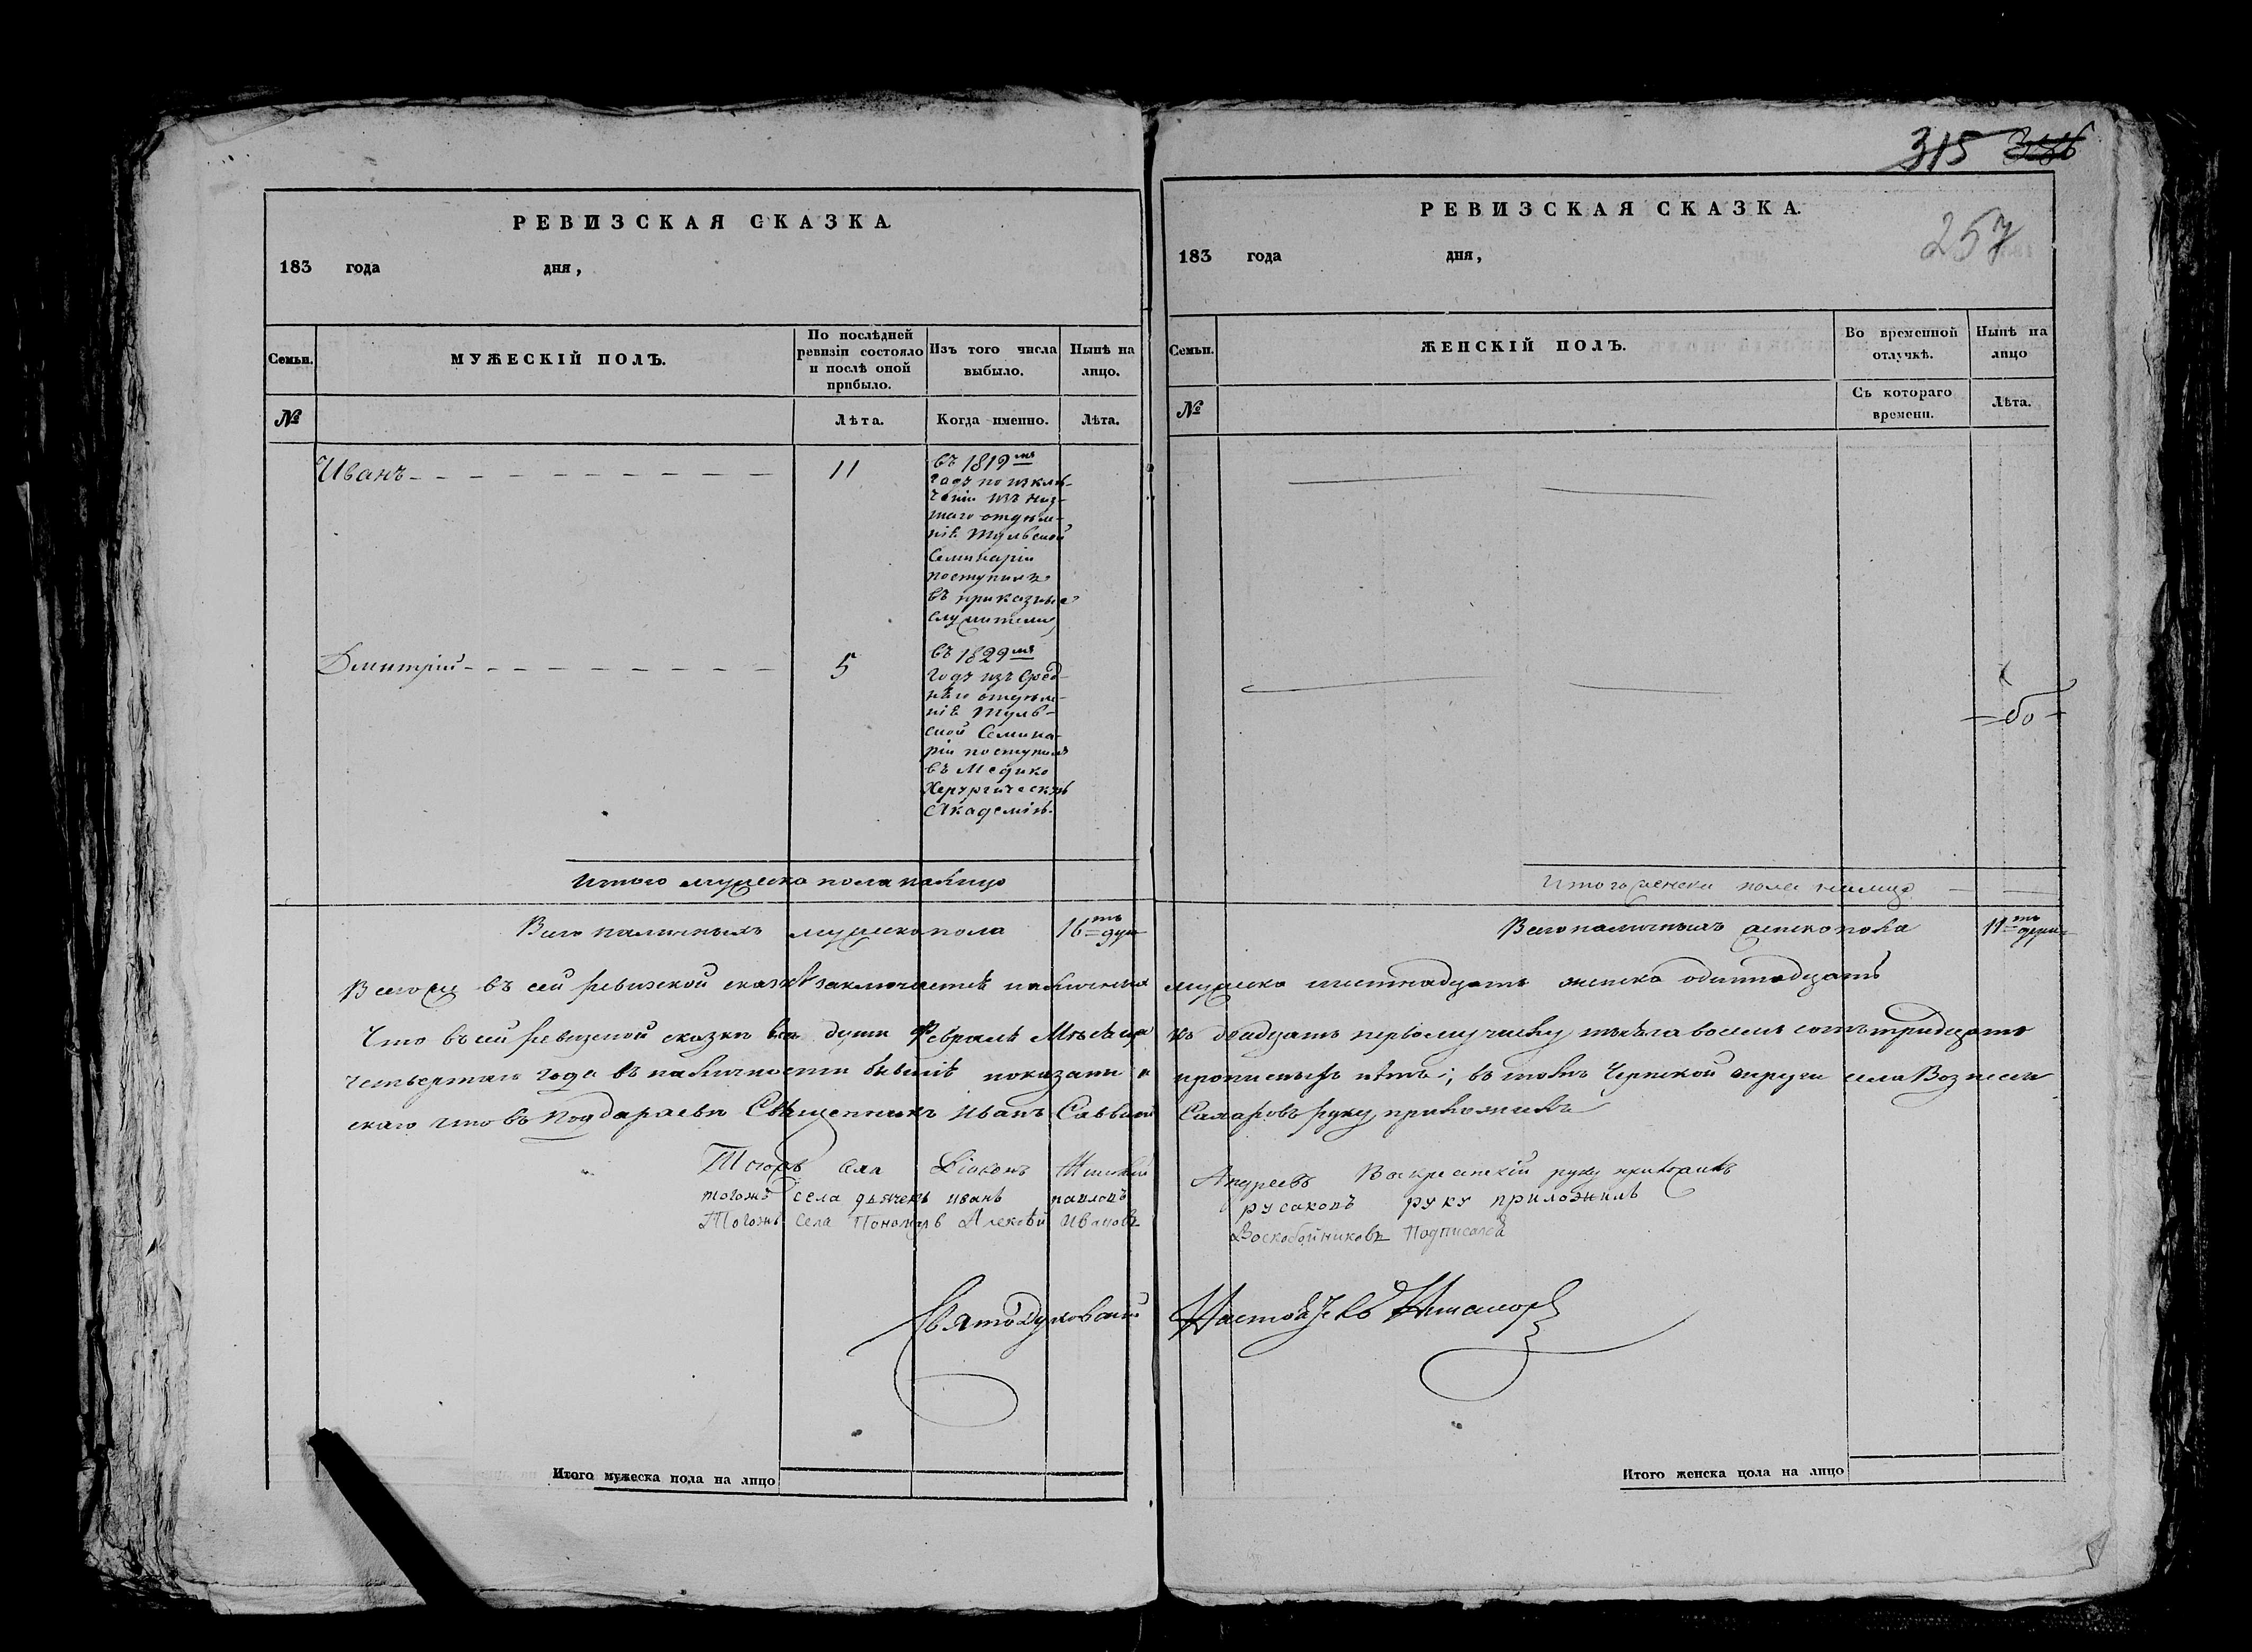 315 326
РЕВИЗСКАЯ СКАЗКА.
183 года дня,
Семьи. МУЖЕСКІЙ ПОЛЪ. По послѣдней ревизіи состояло и послѣ оной прибыло. Изъ того числа выбыло. Нынѣ на лицо.
№ Лѣта. Когда именно. Лѣта.
Иванъ 11
въ 1819мъ
годѣ по изклю-
ченіи изъ низ-
шаго отдѣле-
нія Тульской
Семинаріи
поступилъ
въ приказные
служители
Дмитрій 5
въ 1829мъ
годѣ изъ сред-
няго отдѣле-
нія Туль-
ской Семина-
ріи поступилъ
въ Медико
Херургическую
Академію.
Итого мужеска пола налицо
Всего наличныхъ мужеска пола 16ть душ
РЕВИЗСКАЯ СКАЗКА.
257
183 года дня,
Семьи. ЖЕНСКІЙ ПОЛЪ. Во временной отлучкѣ. Нынѣ на лицо
№ Съ котораго времени. Лѣта.
Итого женска пола налицо
Всего наличныхъ женска пола 11ть душ
Всего же въ сей ревизской сказкѣ заключается наличныхъ мужеска шестнадцать женска одиннадцать
Что въ сей ревизской сказкѣ все души Февраля Мѣсяца къ двадцать первому числу тысяча восемь сотъ тридцать
четвертаго года въ наличности бывшія показаны и прописныхъ нѣтъ; въ томъ Чернской округи села Вознесен
скаго что въ Поддараевѣ Священникъ Иванъ Саввинъ Сахаровъ руку приложилъ
Тогожъ села Діаконъ Андреевъ Воскресенскій руку приложилъ
тогожъ села дьячекъ иванъ павловъ русаковъ руку приложилъ
Тогожъ села Пономарь Алексѣй Ивановъ Воскобойниковъ Подписался
Итого мужеска пола на лицо
Итого женска пола на лицо